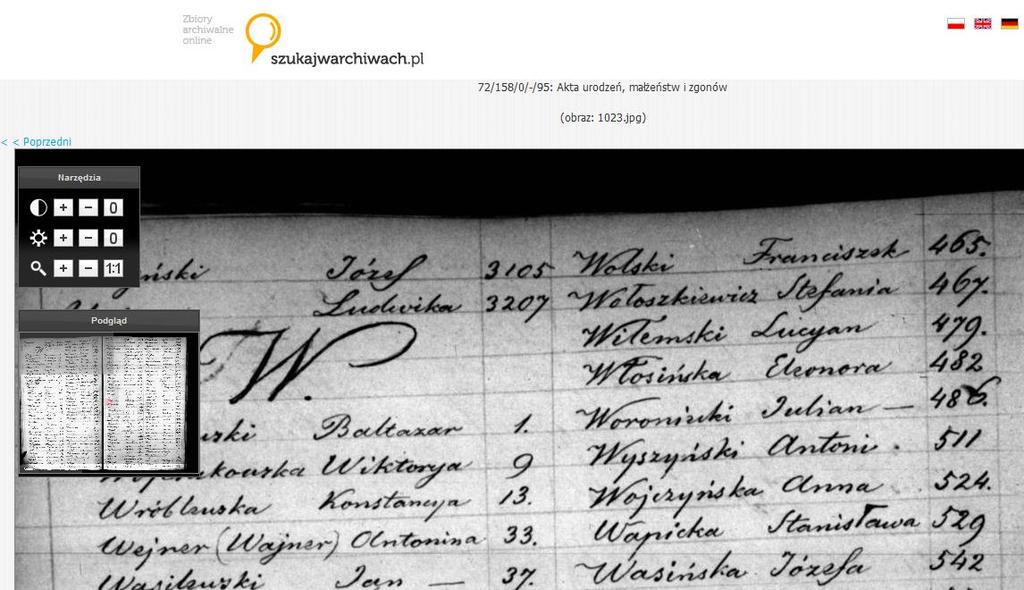 Zbiory
archiwalne
online
szukajwarchiwach.pl
72/158/0/-/95: Akta urodzeń, małżeństw i zgonów
(obraz: 1023.jpg)
< < Poprzedni
Narzędzia
+ − 0
+ − 0
+ − 1:1
Podgląd
Józef 3105
Ludwika 3207
W.
Baltazar 1.
Wiktorya 9
Wróblewska Konstancya 13.
Wejner (Wajner) Antonina 33.
Wasilewski Jan — 37.
Wolski Franciszek 465.
Wołoszkiewicz Stefania 467.
Wilemski Lucyan 479.
Włosińska Eleonora 482
Woroniecki Julian — 486.
Wyszyński Antoni . 511
Wojczyńska Anna 524.
Wapicka Stanisława 529
Wasińska Józefa 542